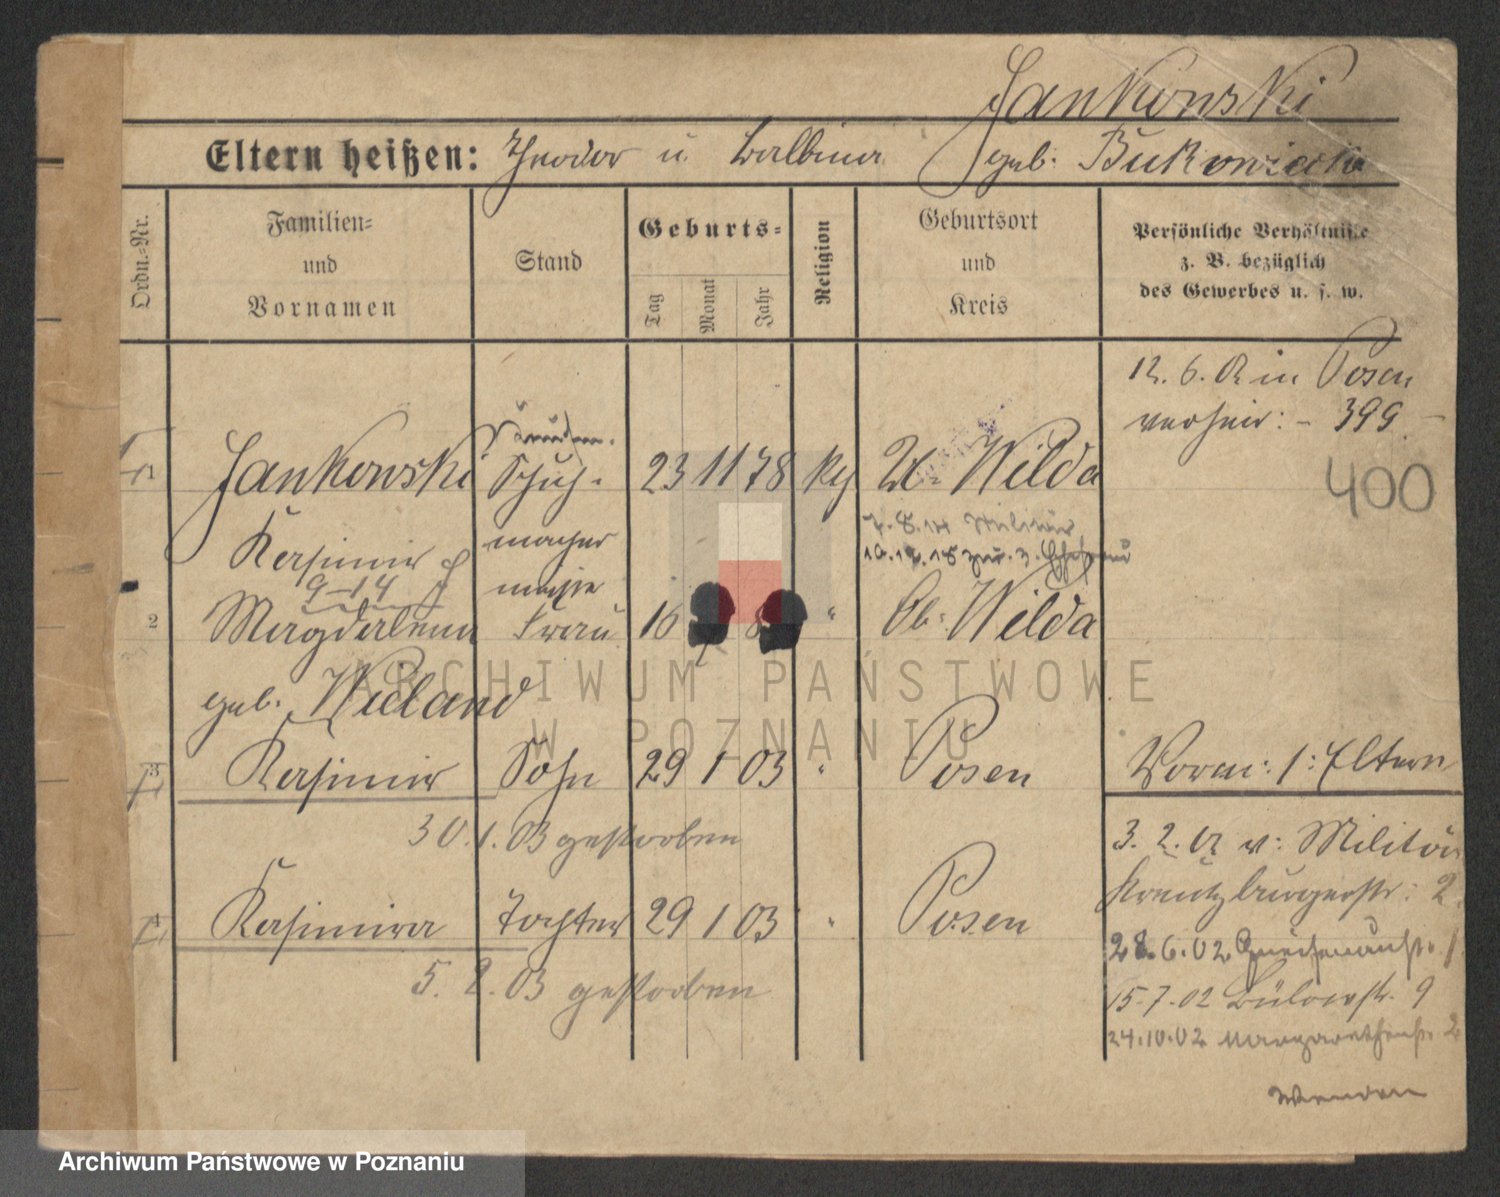 Jankowski
Eltern heißen: Theodor u. Balbina geb. Bukowiecka
Ordn.-Nr.
Familien-
und
Vornamen
Stand
Geburts-
Tag
Monat
Jahr
Religion
Geburtsort
und
Kreis
Persönliche Verhältnisse
z. B. bezüglich
des Gewerbes u. s. w.
12. 6. 02 in Posen
verheir: - 399 -
400
1 Jankowski Schuh- 23 11 78 kth Wilda
Kasimir macher
7. 8. 14 Militär
9-14
2 Magdalena Frau 16 " Ob. Wilda
geb. Wieland
3 Kasimir Sohn 29 1 03 " Posen Vorm: 1: Eltern
30. 1. 03 gestorben
3. 2. 02 v: Militär
Kreutzburgerstr: 2.
4 Kasimira Tochter 29 1 03 " Posen
28. 6. 02 Gneisenaustr. 1
5. 2. 03 gestorben
15. 7. 02 Bülowstr. 9
24. 10. 02 Margarethenstr. 2
Wenden
ARCHIWUM PAŃSTWOWE
W POZNANIU
Archiwum Państwowe w Poznaniu